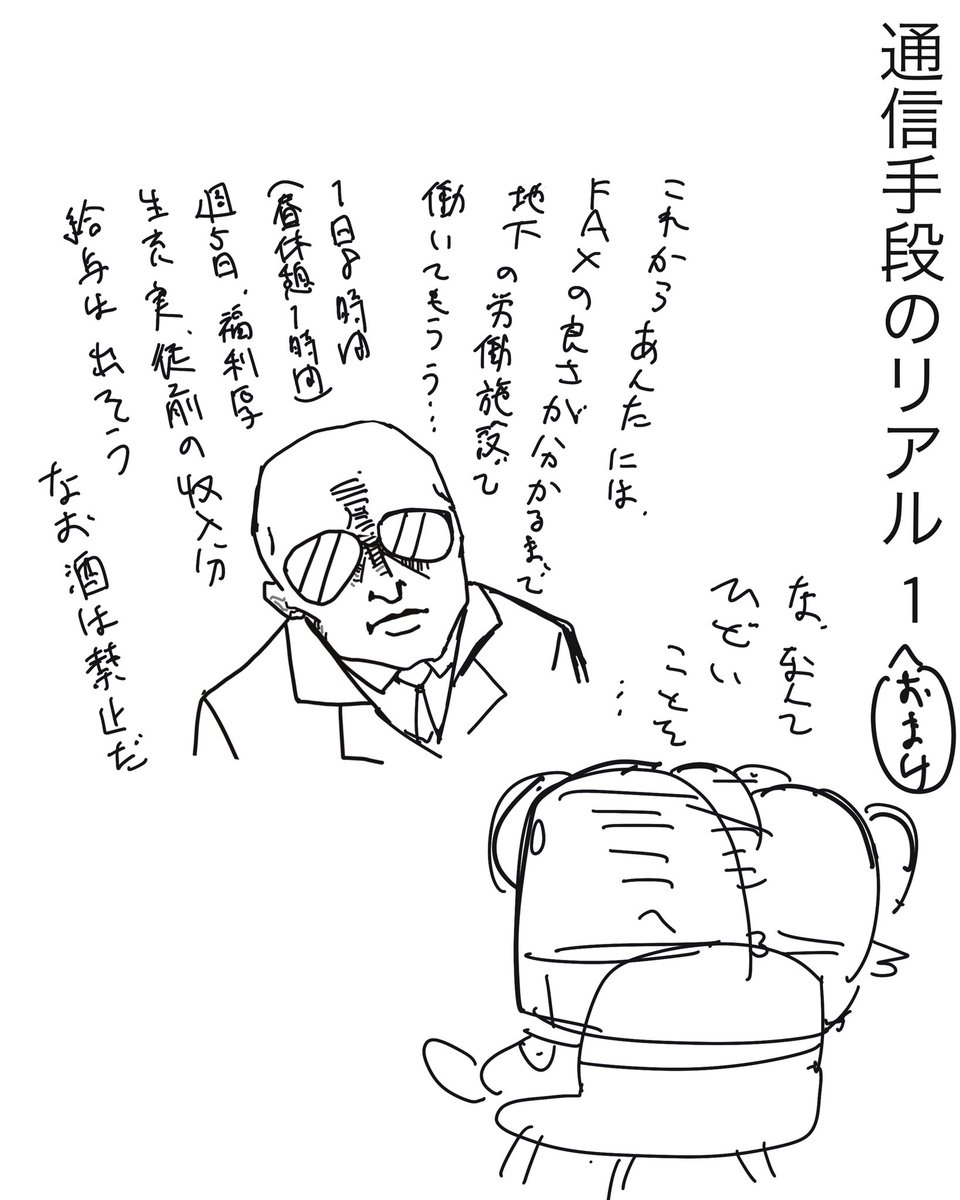 通信手段のリアル 1へ
おまけ
これからあんたには、
FAXの良さが分かるまで
地下の労働施設で
働いてもらう…
1日8時間
(昼休憩1時間)
週5日、福利厚
生充実、従前の収入分
給与は出そう
なお酒は禁止だ
な、なんて
ひどい
ことを
…